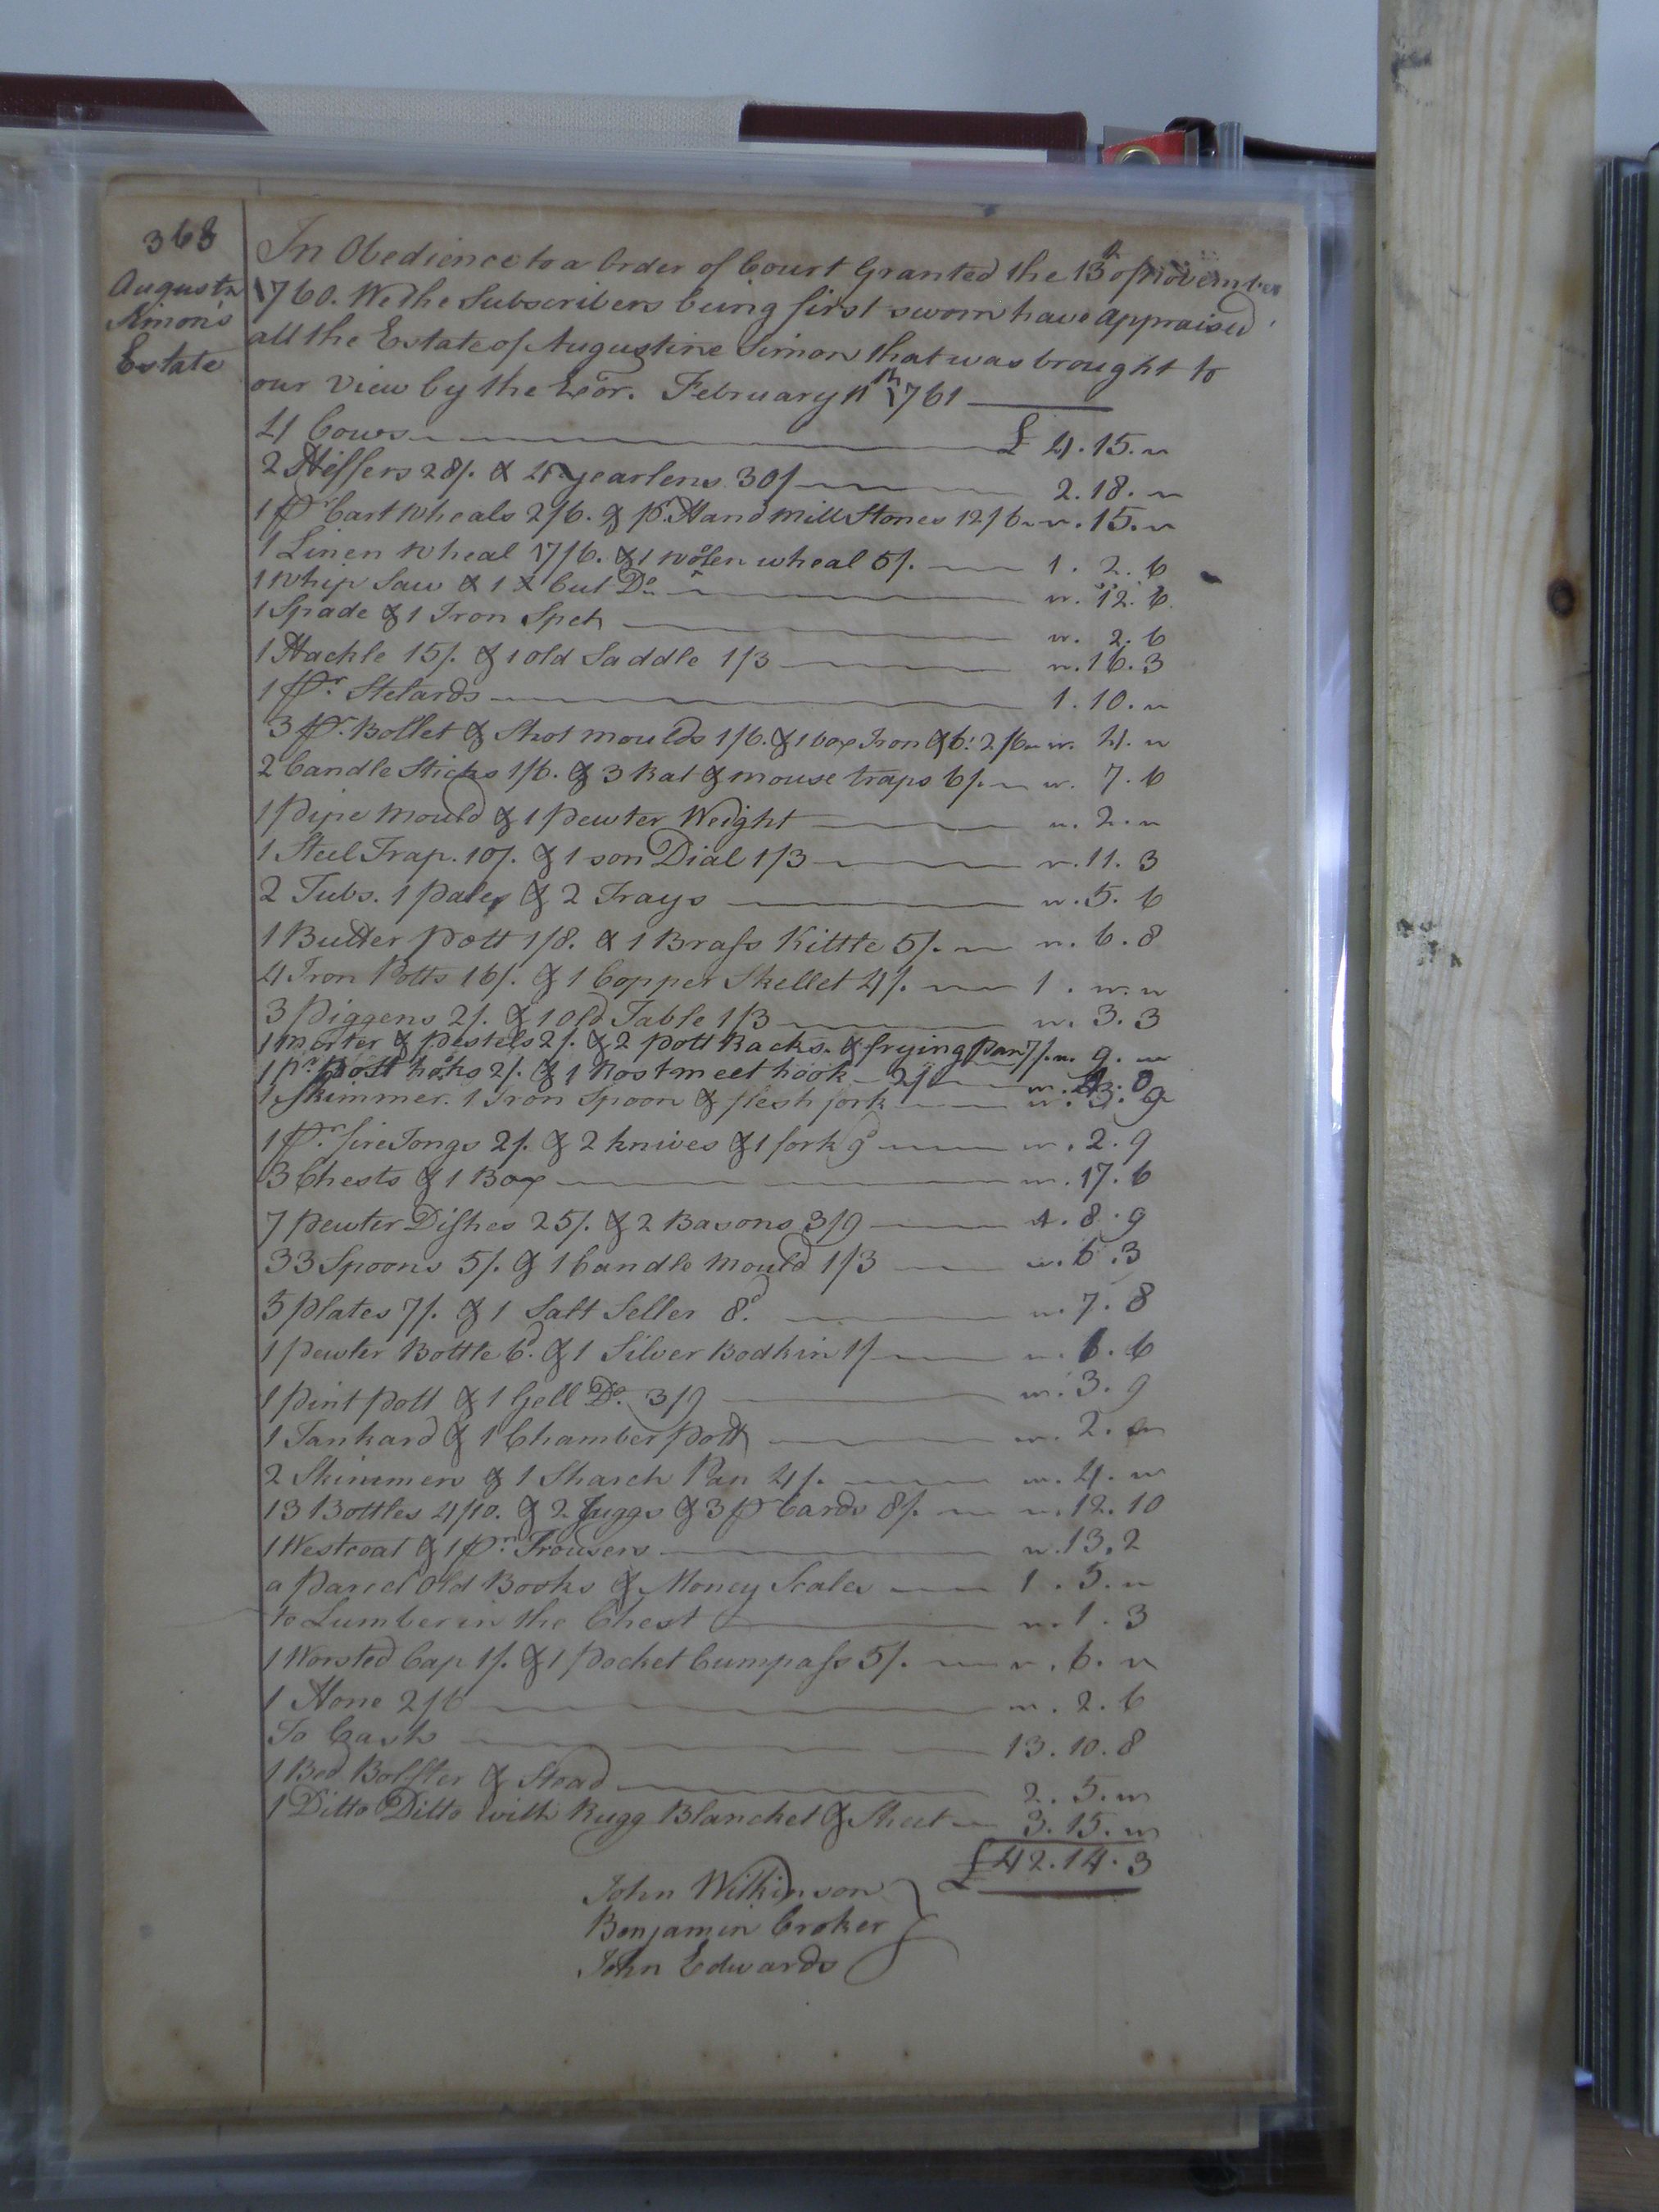 368
Augustn
Simon's
Estate
In Obedience to a Order of Court Granted the 13th of November
1760. We the Subscribers being first sworn have appraised
all the Estate of Augustine Simon that was brought to
our view by the Exor. February 11th 1761
4 Cows £ 4.15.〃
2 Hiffers 28/. & 4 yearlens 30/ 2.18.〃
1 Pr Cart Wheals 2/6. & pr. Hand Mill Stones 12/6 〃.15.〃
1 Linen Wheal 17/6. & 1 wolen wheal 5/. 1.2.6
1 Whip Saw & 1 X Cut Do. 〃.12.6
1 Spade & 1 Iron Spet 〃.2.6
1 Hackle 15/. & 1 old Saddle 1/3 〃.16.3
1 Pr. Stelards 1.10.〃
3 Pr. Bollet & Shot moulds 1/6. & 1 box Iron & 2/6 〃.4.〃
2 Candle Sticks 1/6. & 3 Rat & mouse traps 6/. 〃.7.6
1 Pipe mould & 1 Pewter Weight 〃.2.〃
1 Steel Trap. 10/. & 1 son Dial 1/3 〃.11.3
2 Tubs. 1 pale & 2 Trays 〃.5.6
1 Butter Pott 1/8. & 1 Brass Kittle 5/. 〃.6.8
4 Iron Potts 16/. & 1 Copper Skellet 4/. 1.〃.〃
3 Piggens 2/. & 1 Old Table 1/3 〃.3.3
1 morter & Pestels 2/. & 2 Pott Racks. & frying Pan 7/. 〃.9.〃
1 Pr. Pott hoks 2/. & 1 Rost meet hook 2/ 〃.4.0
1 Skimmer. 1 Iron Spoon & flesh fork 〃.3.9
1 Pr. fire Tongs 2/. & 2 knives & 1 fork 9d 〃.2.9
3 Chests & 1 Box 〃.17.6
7 Pewter Dishes 25/. & 2 Basons 3/9 1.8.9
33 Spoons 5/. & 1 Candle Mould 1/3 〃.6.3
5 Plates 7/. & 1 Salt Seller 8d. 〃.7.8
1 Pewter Bottle 6d. & 1 Silver Bodkin 1/ 〃.1.6
1 Pint Pott & 1 Gell Do. 3/9 〃.3.9
1 Tankard & 1 Chamber Pott 〃.2.〃
2 Skimmers & 1 Sharch Pan 4/. 〃.4.〃
13 Bottles 4/10. & 2 Juggs & 3 pr Cards 8/. 〃.12.10
1 Westcoat & 1 Pr. Trousers 〃.13.2
a Parcel Old Books & Money Scales 1.5.〃
to Lumber in the Chest 〃.1.3
1 Worsted Cap 1/. & 1 Pocket Cumpass 5/. 〃.6.〃
1 Hone 2/6 〃.2.6
To Cash 13.10.8
1 Bed Bolster & Stead 2.5.〃
1 Ditto Ditto with Rugg Blancket & Sheet 3.15.〃
£42.14.3
John Wilkinson
Benjamin Croker
John Edwards